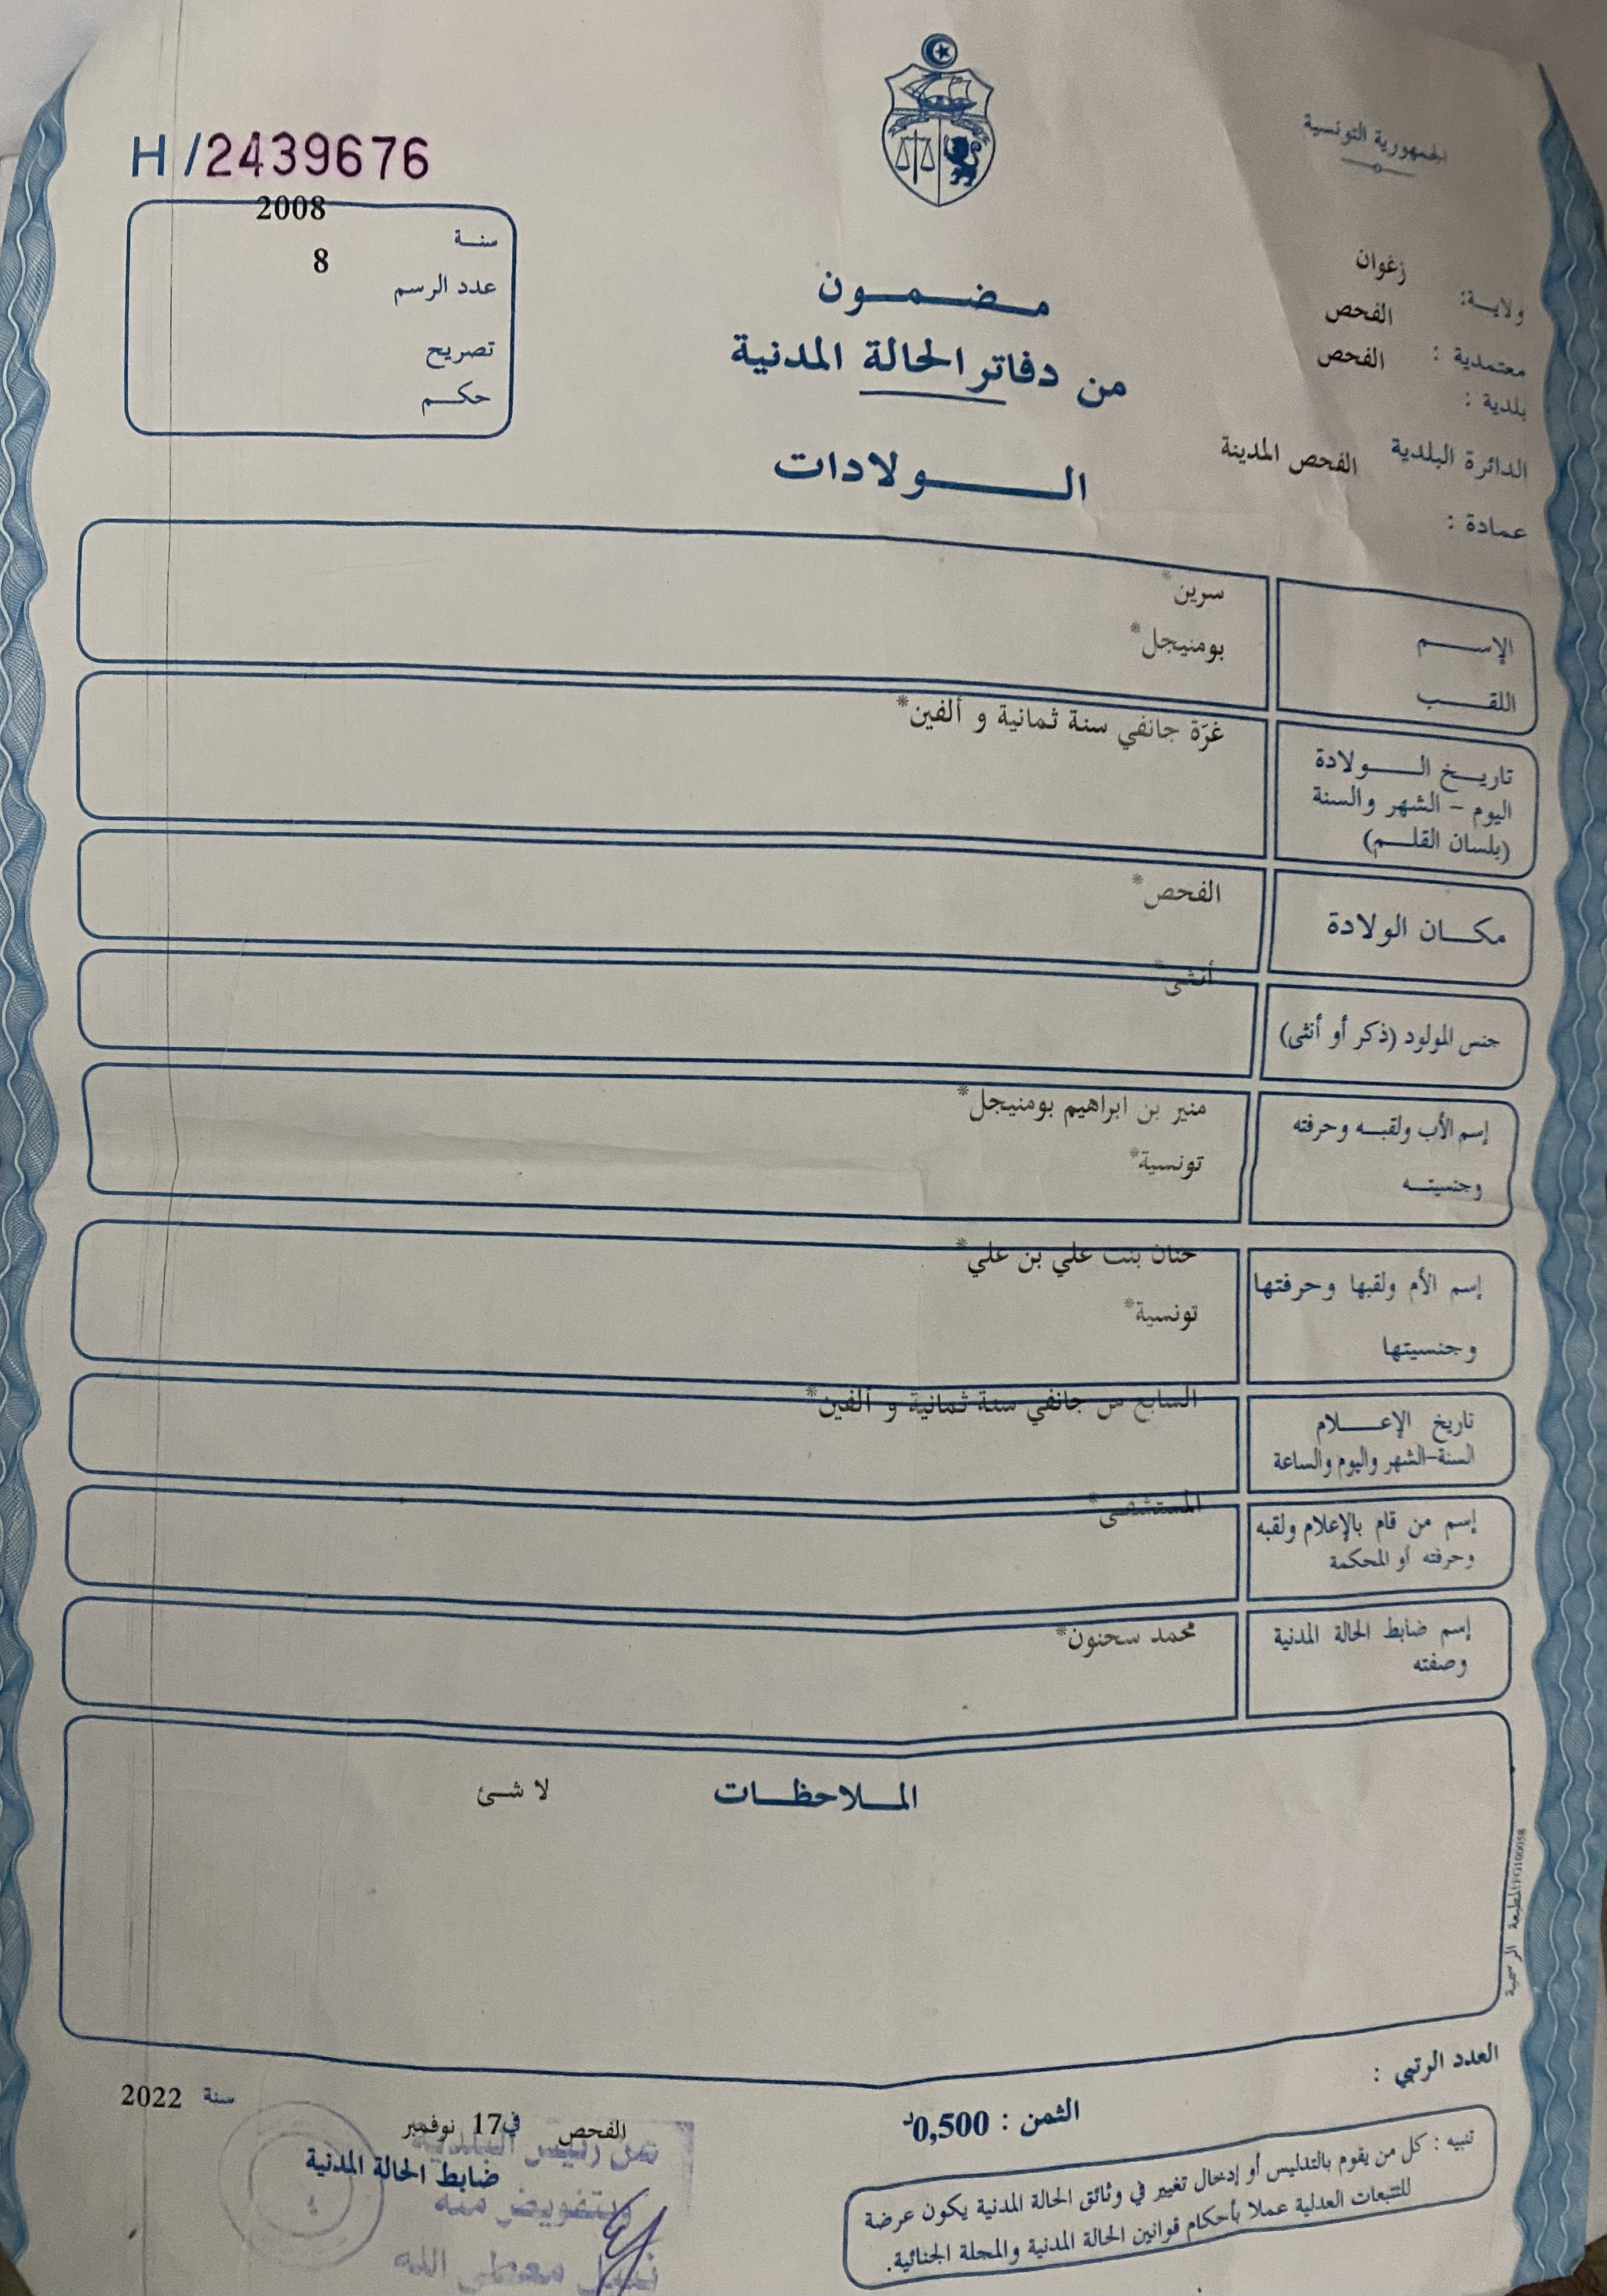 الجمهورية التونسية
H/2439676
2008
سنة
8
عدد الرسم
تصريح
حكم
مضمون
من دفاتر الحالة المدنية
الولادات
زغوان
ولاية:
الفحص
معتمدية :
الفحص
بلدية :
الدائرة البلدية الفحص المدينة
عمادة :
الإسم سرين*
اللقب بومنيجل*
تاريخ الولادة غرّة جانفي سنة ثمانية و ألفين*
اليوم - الشهر والسنة
(بلسان القلم)
مكان الولادة الفحص*
جنس المولود (ذكر أو أنثى) أنثى*
إسم الأب ولقبه وحرفته منير بن ابراهيم بومنيجل*
وجنسيته تونسية*
إسم الأم ولقبها وحرفتها حنان بنت علي بن علي*
وجنسيتها تونسية*
تاريخ الإعلام السابع من جانفي سنة ثمانية و ألفين*
السنة-الشهر واليوم والساعة
إسم من قام بالإعلام ولقبه المستشفى*
وحرفته أو المحكمة
إسم ضابط الحالة المدنية محمد سحنون*
وصفته
الملاحظات لا شئ
المطبعة الرسمية
العدد الرتبي :
الثمن : 0,500د
تنبيه : كل من يقوم بالتدليس أو إدخال تغيير في وثائق الحالة المدنية يكون عرضة
للتتبعات العدلية عملا بأحكام قوانين الحالة المدنية والمجلة الجنائية.
الفحص في 17 نوفمبر سنة 2022
ضابط الحالة المدنية
عن رئيس البلدية
وبتفويض منه